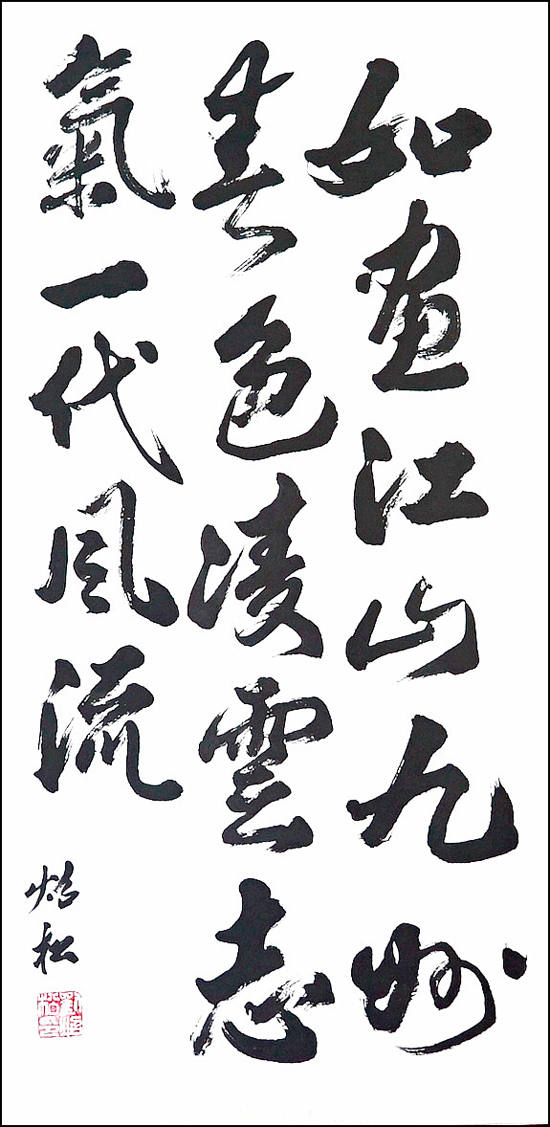 如画江山九州
春色凌雲志
氣一代風流
松